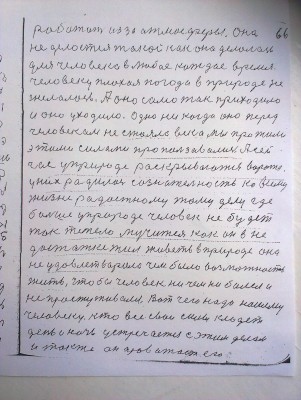 66
работат из за атмосферы. Она
не делается такой как она делалась
для человека в любое каждое время
человеку плохая погода в природе не
желалась. А оно само так приходило
и оно уходило. Одно никогда оно перед
человеком не стояло века мы прожили
этими силами прополозовались. А сей-
час у природе раскрываются ворота,
у них родилась сознательность ко всему
жизне радостному тому делу где
больше у природе человек не будет
так тяжело мучится как он в не
достатке жил живёть в природе она
не удовлетворила чем было возможность
жить, чтобы человек ни чем ни болел и
не простуживался. Вот чего надо нашему
человеку, кто все свои силы кладёт
день и ночь устречается с этим делом
и также он провожает его.